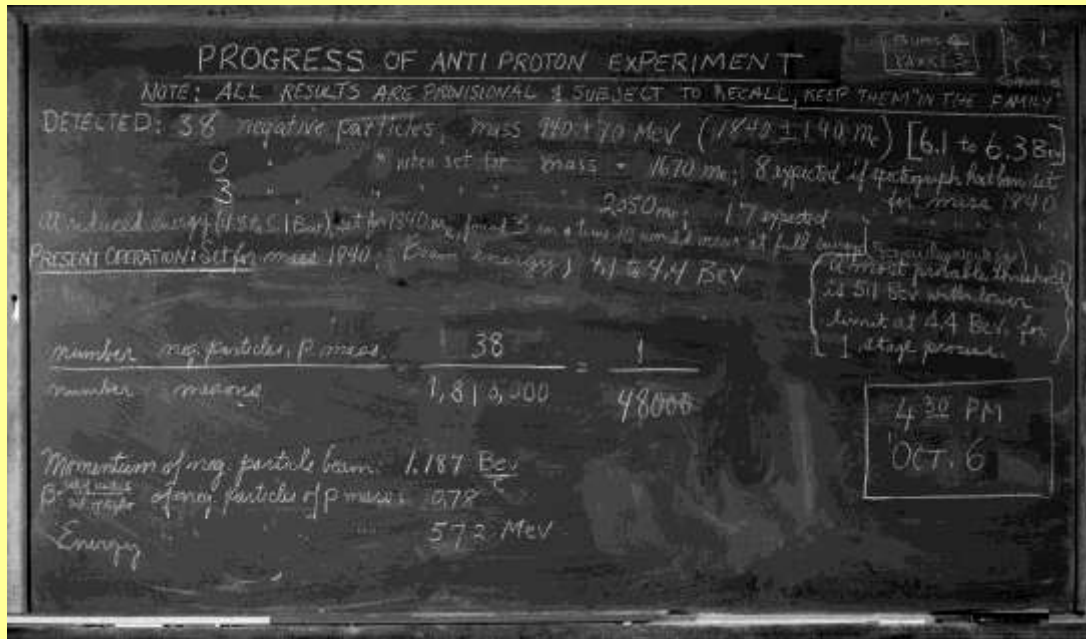 PROGRESS OF ANTI PROTON EXPERIMENT
NOTE: ALL RESULTS ARE PROVISIONAL & SUBJECT TO RECALL, KEEP THEM "IN THE FAMILY"
DETECTED: 38 negative particles, mass 940 ± 70 MeV (1840 ± 140 me) [6.1 to 6.3 Bev]
0 " " when set for mass = 1670 me; 8 expected if spectrograph had been set for mass 1840
3 " " " " " 2050 me; 17 expected
At reduced energy set for 1840 me, found 3 in a time 10 would mean at full energy
PRESENT OPERATION: Set for mass 1840. Beam energy, 4.1 to 4.4 BeV
most probable threshold
is 5.1 Bev with lower
limit at 4.4 Bev. for
1 stage process.
number neg. particles, p mass 38 1
number mesons = 1,810,000 48000
4 30 PM
OCT. 6
Momentum of neg. particle beam: 1.187 Bev/c
β of neg particles of p mass: 0.78
Energy " " " 572 MeV